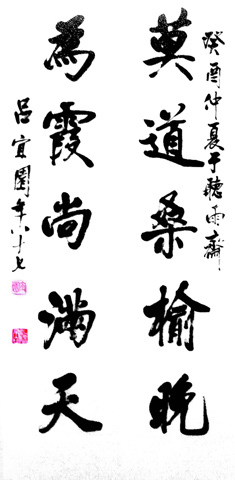 癸酉仲夏于聽雨齋
莫道桑榆晚
為霞尚滿天
呂宜園年八十七